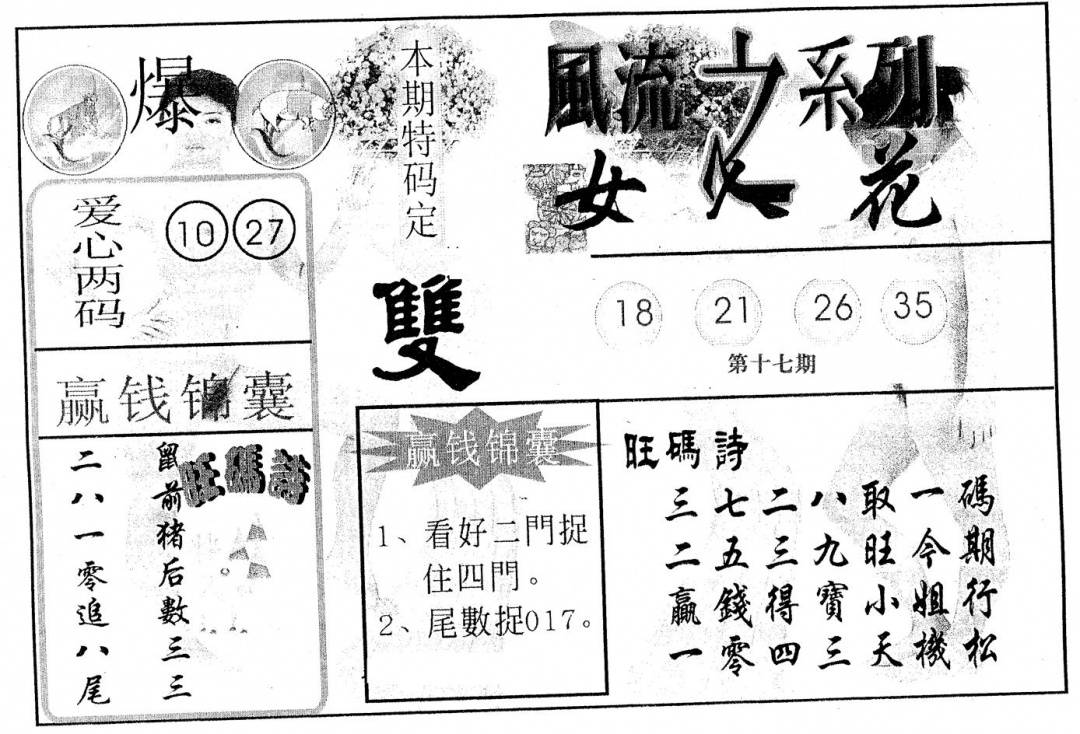 爆
本期特码定
雙
風流之系列
女人花
爱心两码
10 27
18 21 26 35
第十七期
赢钱锦囊
旺碼詩
鼠前猪后數三三
二八一零追八尾
赢钱锦囊
1、看好二門捉
住四門。
2、尾數捉017。
旺碼詩
三七二八取一碼
二五三九旺今期
贏錢得寶小姐行
一零四三天機松